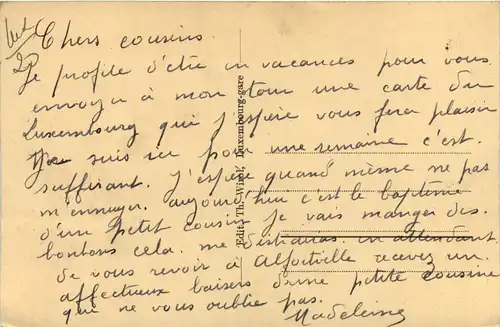 Chers cousins.
Je profite d'être en vacances pour vous
envoyer à mon tour une carte du
Luxembourg qui j'espère vous fera plaisir
Je suis ici pour une semaine c'est
suffisant. j'espère quand même ne pas
m'ennuyer. aujourd'hui c'est le baptême
d'un petit cousin je vais manger des
bonbons cela me en attendant
de vous revoir à Alfortville recevez un
affectueux baisers d'une petite cousine
qui ne vous oublie pas.
Madeleine
Edit. Th. Wirol, Luxembourg-gare